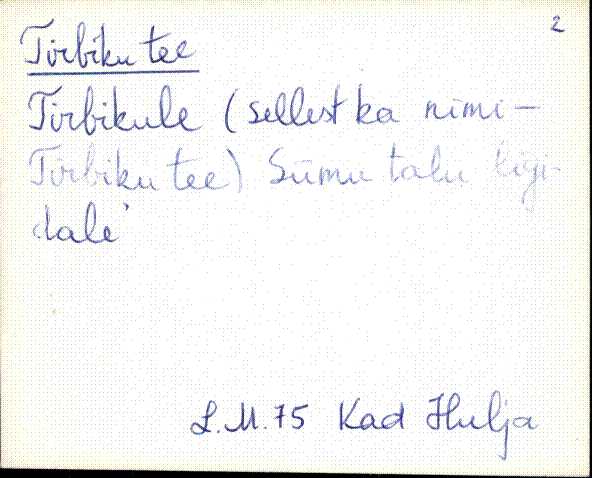 2
Tirbiku tee
Tirbikule (sellest ka nimi –
Tirbiku tee) Sümu talu ligi-
dale
L.M. 75 Kad Hulja